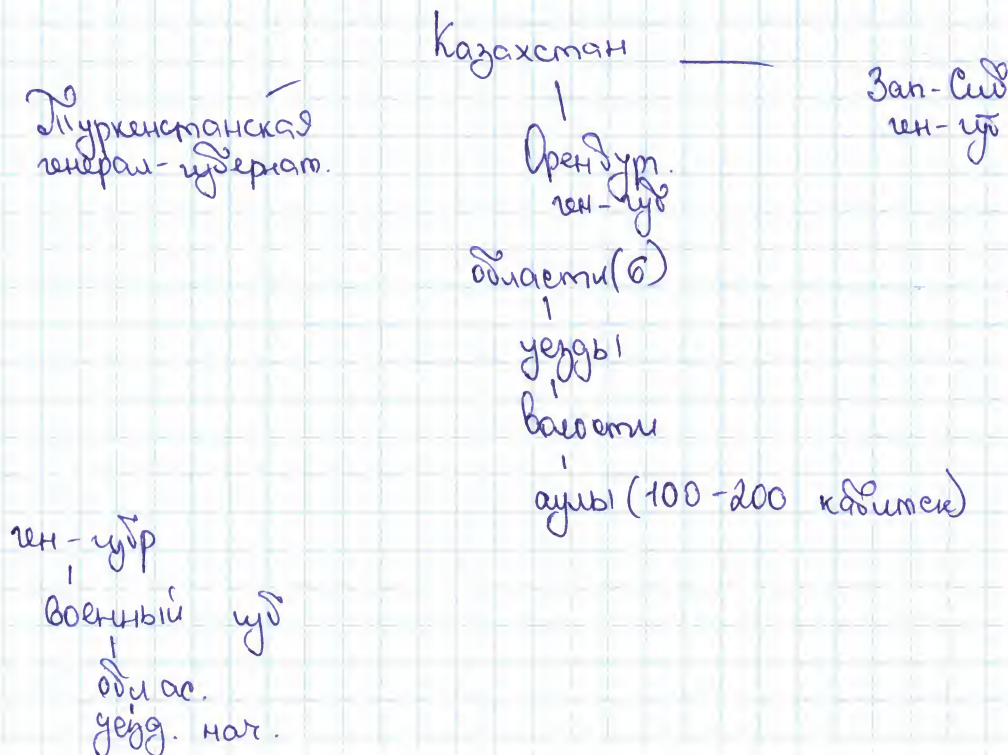 Казахстан
Туркенстанская
генерал-губернат.
Оренбург.
ген-губ
Зап-Сиб
ген-губ
области (6)
уезды
волости
аулы (100-200 кабиток)
ген-губр
военный губ
облас.
уезд. нач.